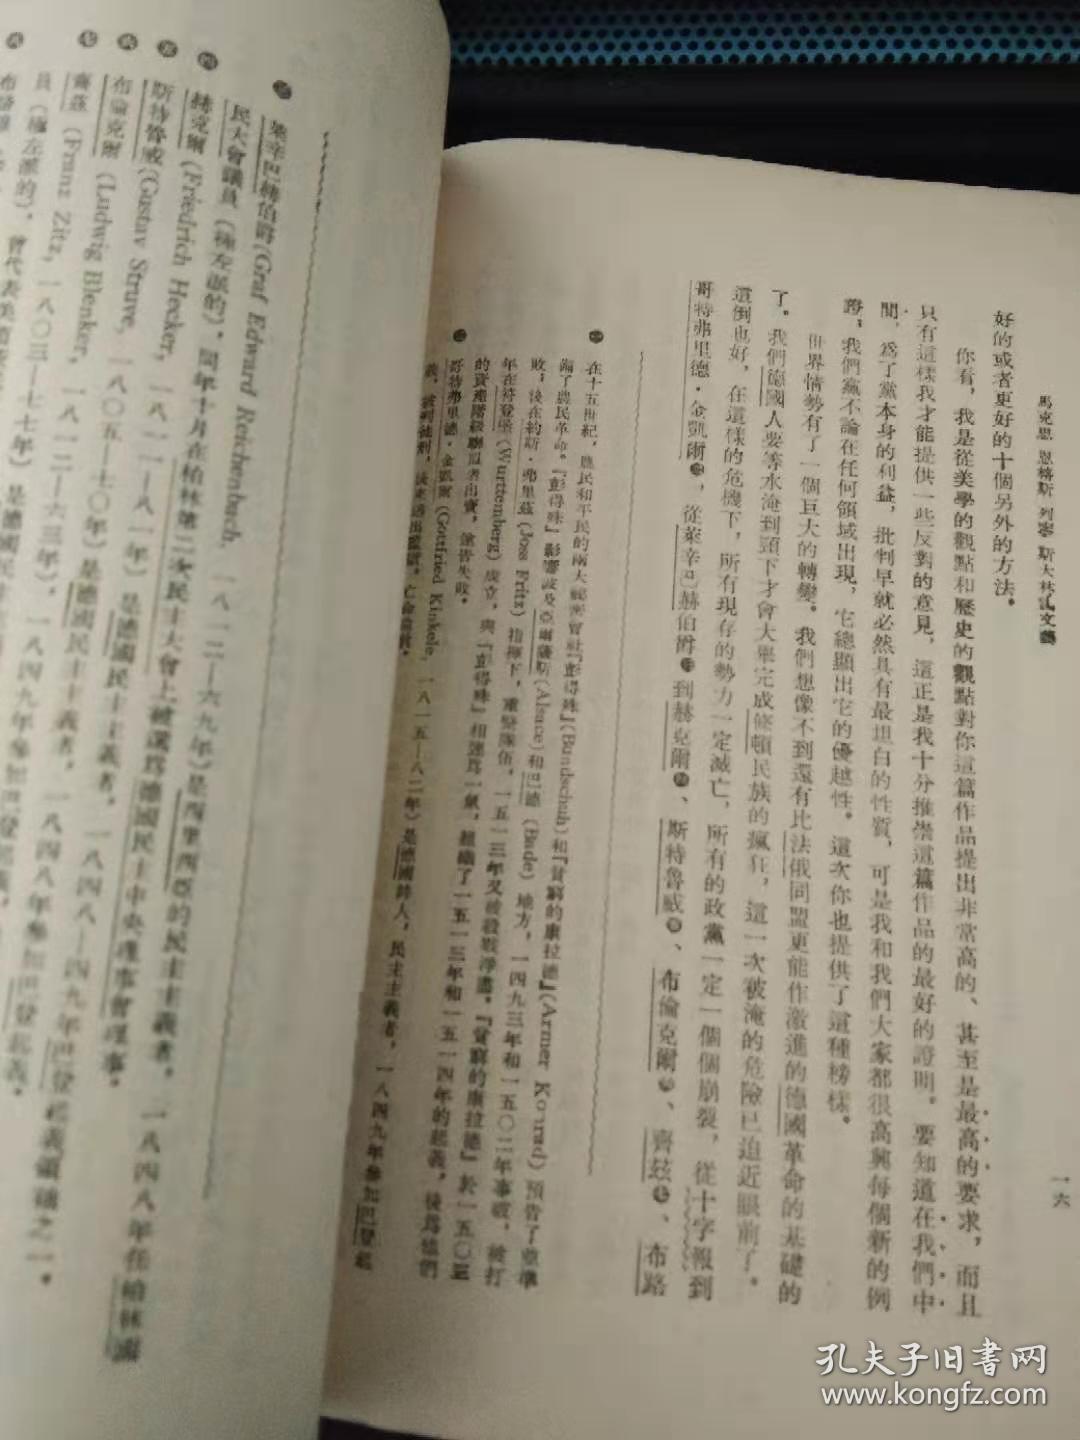 馬克思 恩格斯 列寧 斯大林論文藝
一六
好的或者更好的十個另外的方法。
你看，我是從美學的觀點和歷史的觀點對你這篇作品提出非常高的、甚至是最高的要求，而且
只有這樣我才能提供一些反對的意見，這正是我十分推崇這篇作品的最好的證明。要知道在我們中
間，爲了黨本身的利益，批判早就必然具有最坦白的性質，可是我和我們大家都很高興每個新的例
證，我們黨不論在任何領域出現，它總顯出它的優越性。這次你也提供了這種榜樣。
世界情勢有了一個巨大的轉變。我們想像不到還有比法俄同盟更能作激進的德國革命的基礎的
了。我們德國人要等水淹到頸下才會大舉完成條頓民族的瘋狂，這一次被淹的危險已迫近眼前了。
這倒也好，在這樣的危機下，所有現存的勢力一定滅亡，所有的政黨一定一個個崩裂，從十字報到
哥特弗里德·金凱爾㊁，從萊辛巴赫伯爵㊂到赫克爾㊃、斯特魯威㊄、布倫克爾㊅、齊兹㊆、布路
㊀ 在十五世紀，農民和平民的兩大秘密會社『彭得殊』(Bundschuh)和『貧窮的康拉德』(Armer Konrad)預告了並準
備了農民革命。『彭得殊』影響波及亞爾薩斯(Alsace)和巴德(Bade)地方，一四九三年和一五〇二年事破，被打
敗；後在約斯·弗里兹(Joss Fritz)指揮下，重整隊伍，一五一三年又被殺戮淨盡。『貧窮的康拉德』於一五〇三
年在符登堡(Wurttemberg)成立，與『彭得殊』相連爲一氣，組織了一五一三年和一五一四年的起義，後爲他們
的資產階級聯盟者出賣，遂皆失敗。
㊁ 哥特弗里德·金凱爾(Gottfried Kinkele，一八一五—八二年)是德國詩人，民主主義者，一八四九年參加巴登起
義，被判徒刑，後來逃出監獄，亡命倫敦。
㊂ 萊辛巴赫伯爵(Graf Edward Reichenbach，一八一二—六九年)是西里西亞的民主主義者，一八四八年任柏林國
民大會議員（極左派的），同年十月在柏林第二次民主大會上被選爲德國民主中央理事會理事。
㊃ 赫克爾(Friedrich Hecker，一八一一—八一年)是德國民主主義者，一八四八—四九年巴登起義領袖之一。
㊄ 斯特魯威(Gustav Struve，一八〇五—七〇年)是德國民主主義者，一八四八年參加巴登起義。
㊅ 布倫克爾(Ludwig Blenker，一八一二—六三年)，一八四九年參加巴登起義。
㊆ 齊兹(Franz Zitz，一八〇三—七七年)是德國民
員（極左派的），曾代表美
㊇
孔夫子旧書网
www.kongfz.com